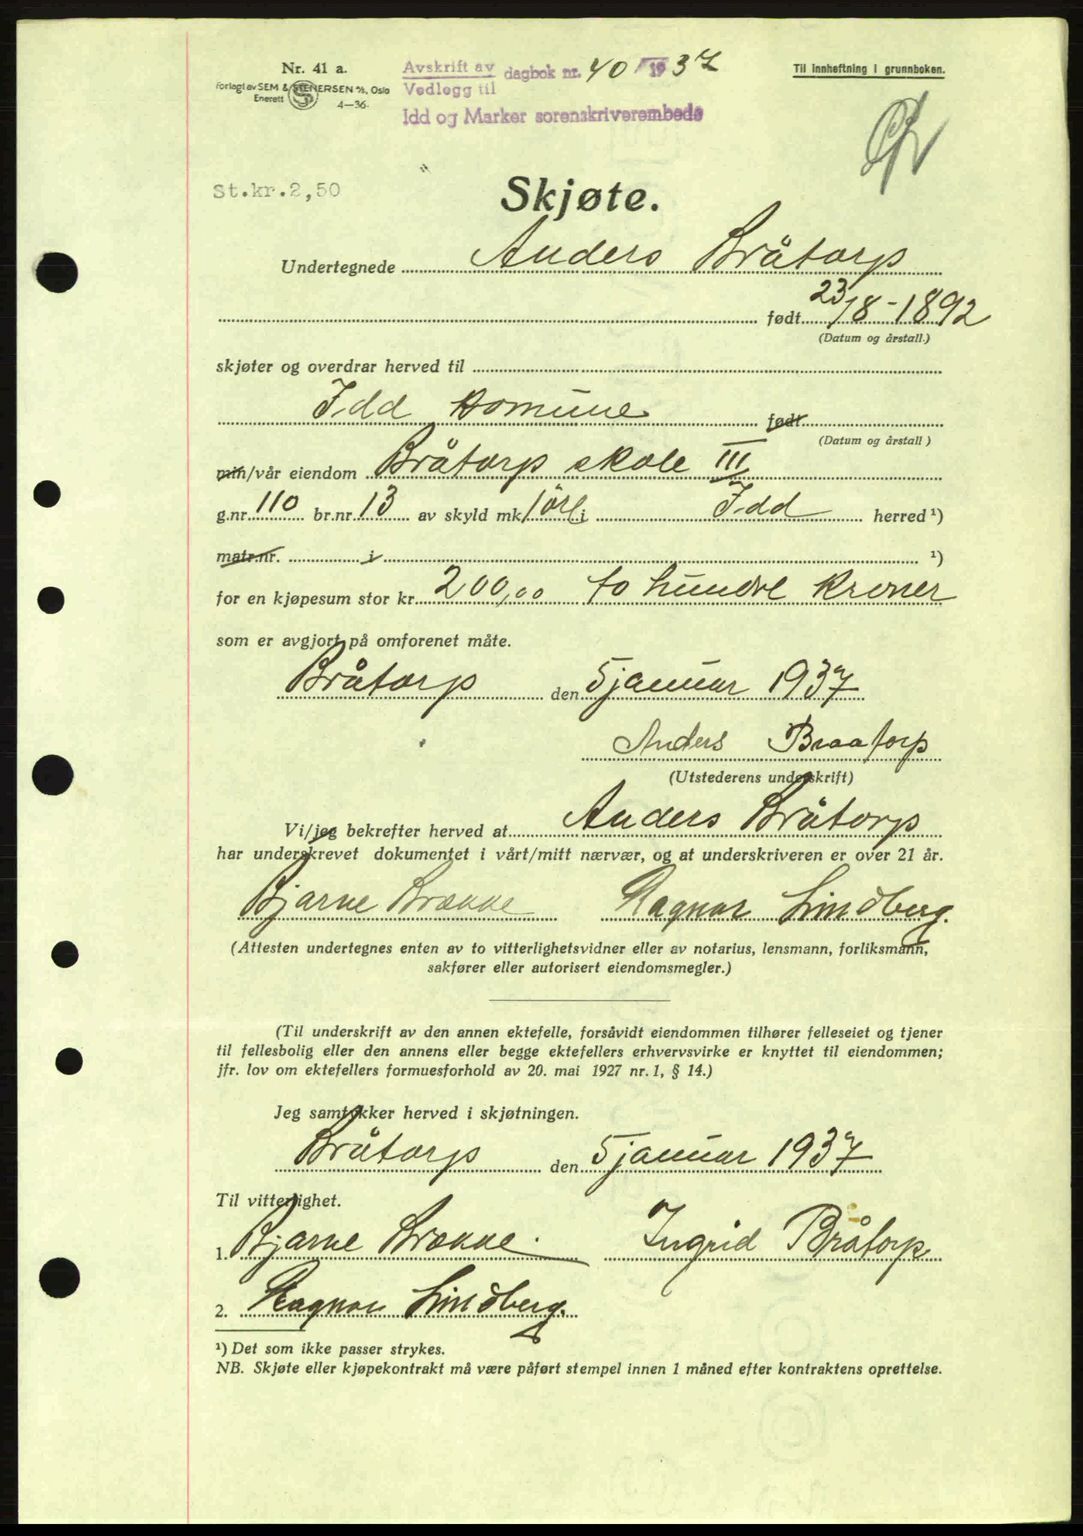 Nr. 41 a.
Forlagt av SEM & STENERSEN A/S, Oslo
Enerett 4—36.
Avskrift av
Vedlegg til dagbok nr. 40 1937
Idd og Marker sorenskriverembede
Til innheftning i grunnboken.
St.kr.2,50
Skjøte.
Undertegnede Anders Bråtorp
født 23/8-1892
(Datum og årstall.)
skjøter og overdrar herved til
Idd komune født
(Datum og årstall)
min/vår eiendom Bråtorp skole III
g.nr. 110 br.nr. 13 av skyld mk. 1 øre i Idd herred ¹)
matr.nr. i ¹)
for en kjøpesum stor kr. 200,00 to hundre kroner
som er avgjort på omforenet måte.
Bråtorp den 5 januar 1937
Anders Braatorp
(Utstederens underskrift)
Vi/jeg bekrefter herved at Anders Bråtorp
har underskrevet dokumentet i vårt/mitt nærvær, og at underskriveren er over 21 år.
Bjarne Brække Ragnar Lindberg.
(Attesten undertegnes enten av to vitterlighetsvidner eller av notarius, lensmann, forliksmann,
sakfører eller autorisert eiendomsmegler.)
(Til underskrift av den annen ektefelle, forsåvidt eiendommen tilhører felleseiet og tjener
til fellesbolig eller den annens eller begge ektefellers erhvervsvirke er knyttet til eiendommen;
jfr. lov om ektefellers formuesforhold av 20. mai 1927 nr. 1, § 14.)
Jeg samtykker herved i skjøtningen.
Bråtorp den 5 januar 1937
Til vitterlighet.
1. Bjarne Brække. Ingrid Bråtorp
2. Ragnar Lindberg.
¹) Det som ikke passer strykes.
NB. Skjøte eller kjøpekontrakt må være påført stempel innen 1 måned efter kontraktens oprettelse.